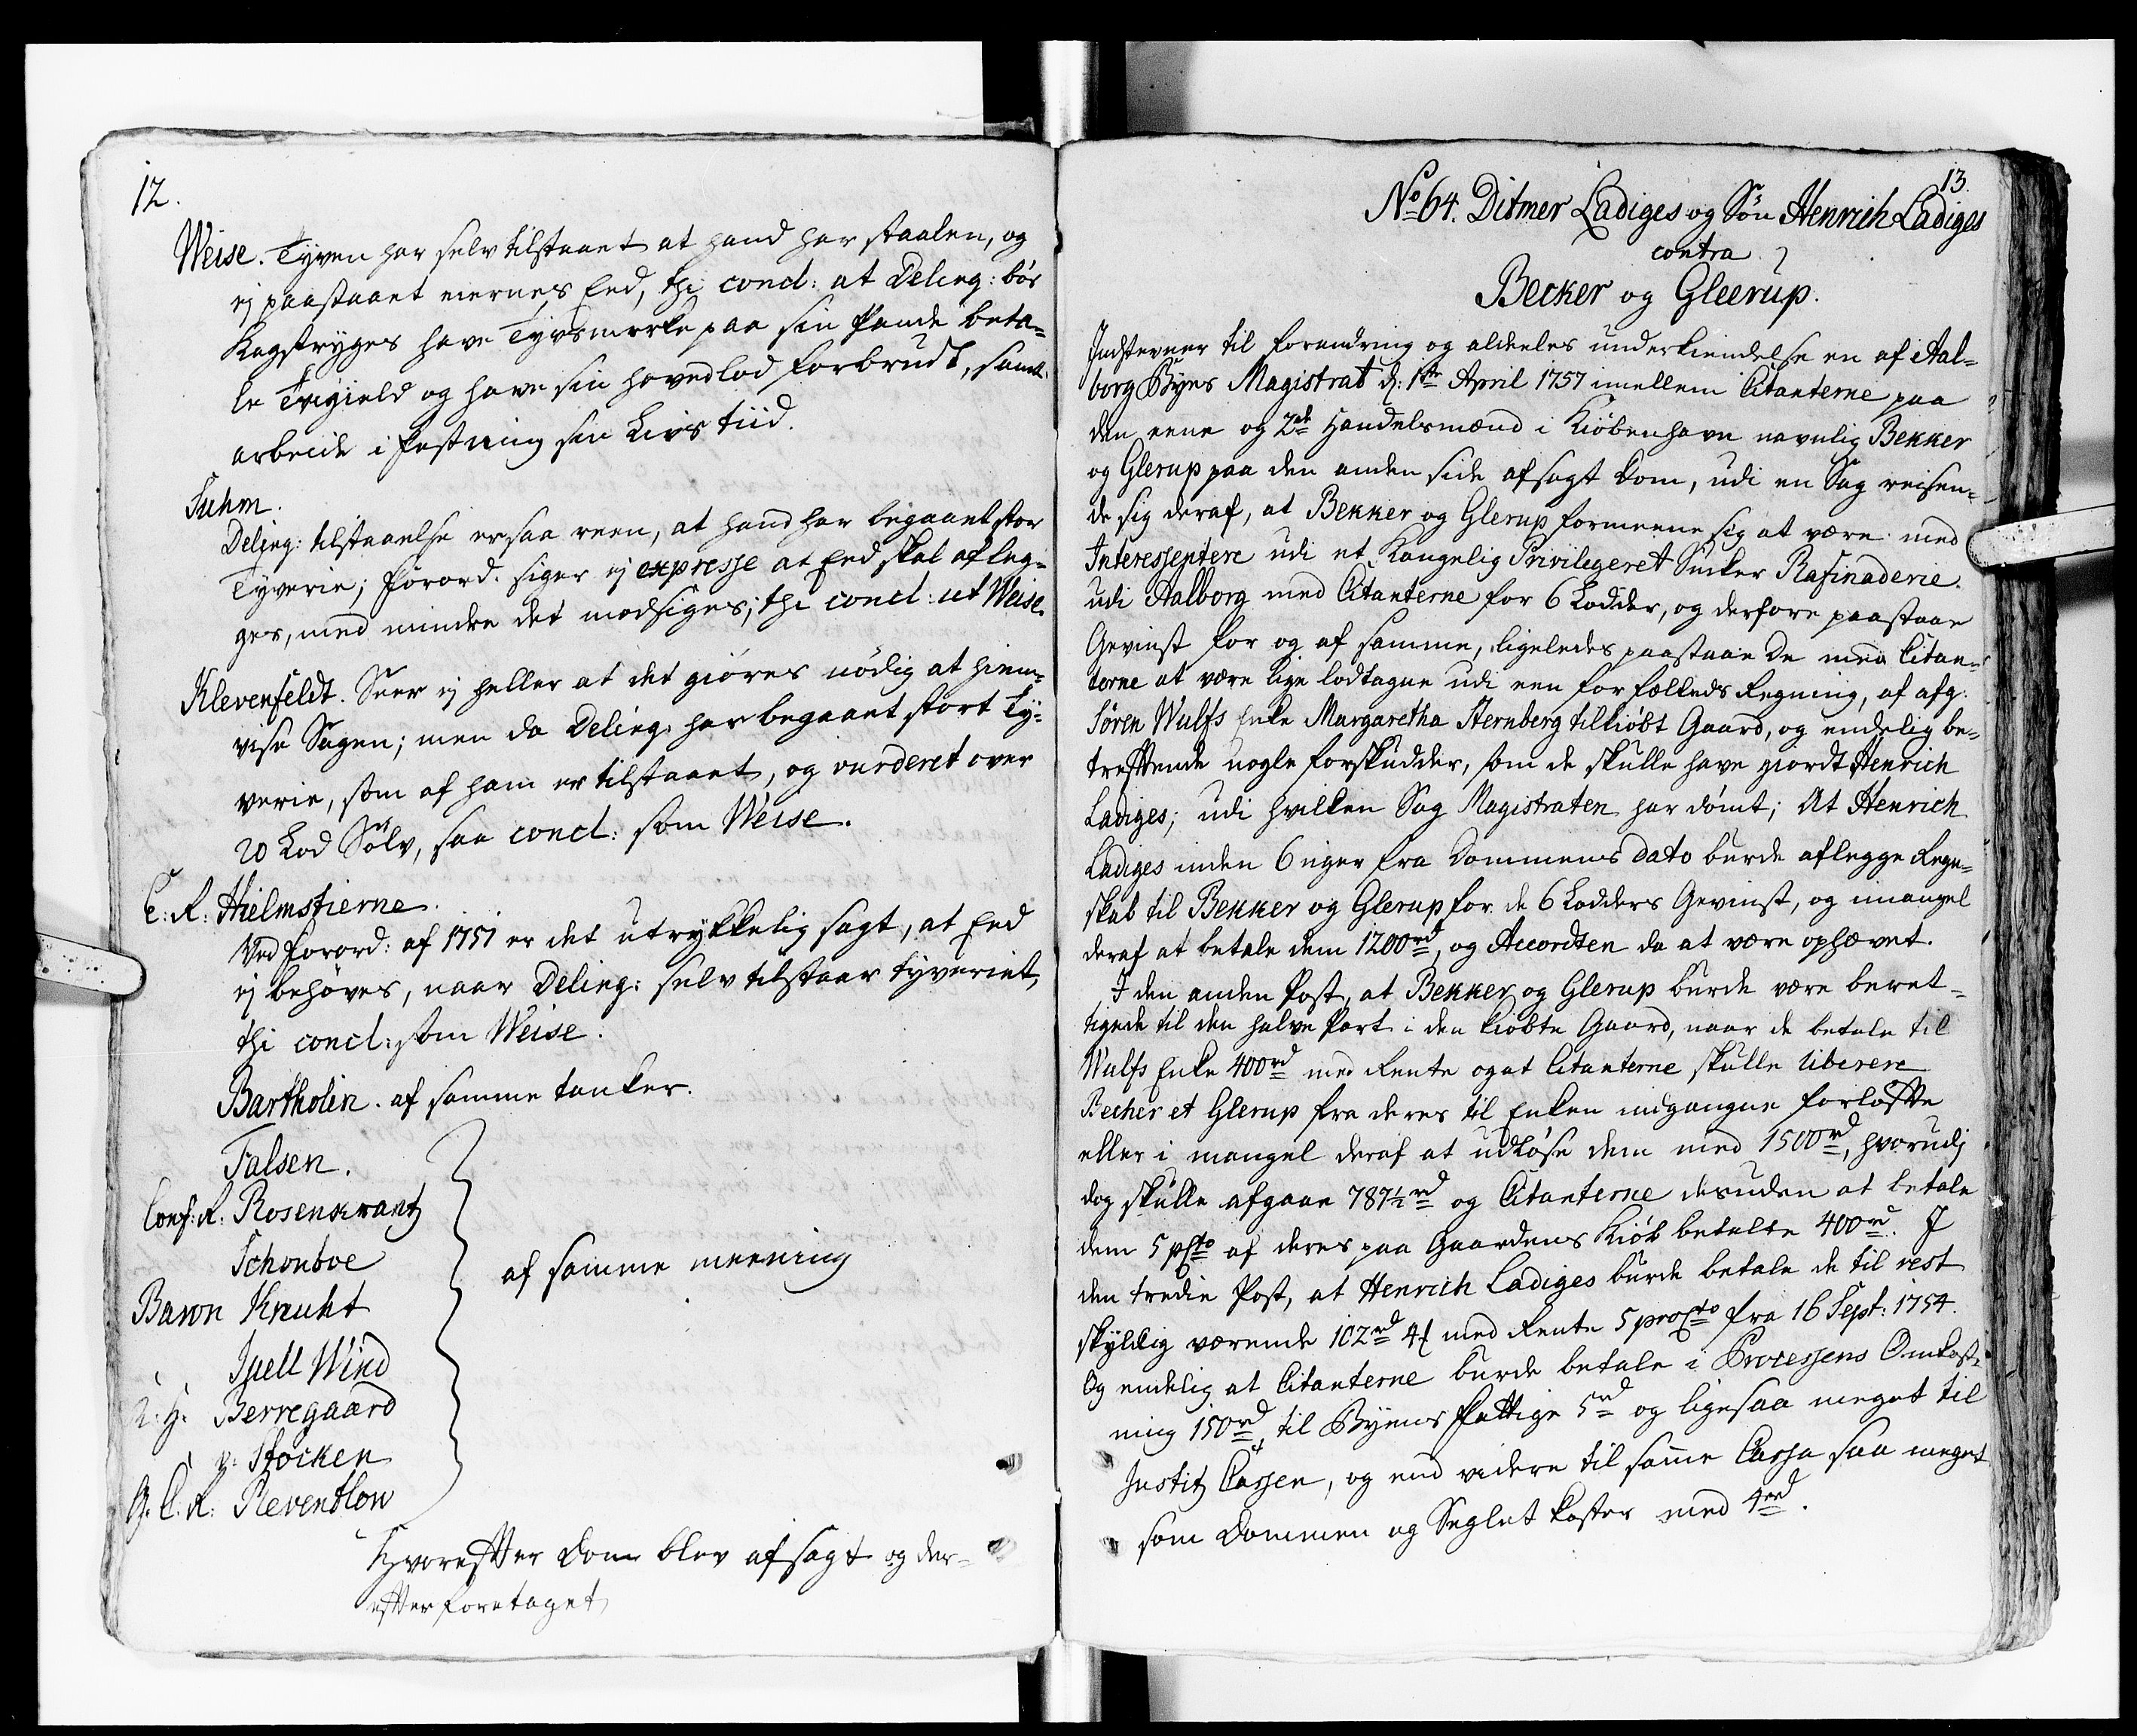 12.
Weise. Tyven har selv tilstaaet at hand har staalen, og
ej paastaaet eiernes Eed, thi concl: at Delinq: bör
Kagstryges have Tyvsmerke paa sin Pande beta-
le Tvigield og have sin hovedlod forbrudt, samt
arbeide i Festning sin Livs tiid.
Suhm.
Delinq: tilstaaelse er saa reen, at hand har begaaet stor
Tyverie; Forord. siger ej expresse at Eed skal afleg-
ges, med mindre det modsiges; thi concl: ut Weise.
Klevenfeldt. Seer ej heller at det giöres nödig at hiem-
vise Sagen; men da Delinq: har begaaet stort Ty-
verie, som af ham er tilstaaet, og vurderet over
20 Lod Sölv, saa concl: som Weise.
E: R: Hielmstierne.
Ved Forord: af 1751 er det utrykkelig sagt, at Eed
ej behöves, naar Delinq: selv tilstaar tyveriet,
thi concl: som Weise.
Bartholin. af samme tanker.
Falsen.
Conf: R: Rosenkrantz
Schonboe
Baron Knuht
Juell Wind
af samme meening
K: H. Berregaard
v: Stöcken
G. C. R: Reventlow
Hvorefter Dom blev afsagt og der-
efter foretaget
13.
No 64. Ditmer Ladiges og Sön Henrich Ladiges
contra
Becker og Gleerup.
Indstevner til forandring og aldeeles underkiendelse en af Aal-
borg Byes Magistrat d: 1ste April 1757 imellem Citanterne paa
den eene og 2de Handelsmænd i Kiöbenhavn navnlig Bekker
og Glerup paa den anden side afsagt Dom, udi en Sag reisen-
de sig deraf, at Bekker og Glerup formeene sig at være med
Interessentere udi et Kongelig Privilegeret Sucker Rafinaderie
udi Aalborg med Citanterne for 6 Lodder, og derfore paastaae
Gevinst for og af samme, ligeledes paastaae De med Citan-
terne at være lige lodtagne udi een for fælleds Regning, af afg:
Sören Wulfs Enke Margaretha Sternberg tilkiöbt Gaard, og endelig be-
treffende nogle forskudder, som de skulle have giordt Henrich
Ladiges; udi hvilken Sag Magistraten har dömt; At Henrich
Ladiges inden 6 uger fra Dommens Dato burde aflegge Regn-
skab til Bekker og Glerup for de 6 Lodders Gevinst, og i mangel
deraf at betale dem 1200 rd, og Accordten da at være ophævet.
I den anden Post, at Bekker og Glerup burde være beret-
tigede til den halve Part i den kiöbte Gaard, naar de betale til
Wulfs Enke 400 rd med Rente og at Citanterne skulle liberere
Becher et Glerup fra deres til Enken indgangne forløfte
eller i mangel deraf at udlöse dem med 1500 rd, hvorudj
dog skulle afgaae 787½ rd og Citanterne desuden at betale
dem 5 pCto af deres paa Gaardens Kiöb betalte 400 rd. I
den tredie Post, at Henrich Ladiges burde betale de til rest
skyldig værende 102 rd 4 ß med Rente 5 pro Cto fra 16 Sept: 1754.
Og endelig at Citanterne burde betale i Processens Omkost-
ning 150 rd, til Byens Fattige 5 rd og ligesaa meget til
Justitz Cassen, og end videre til same Cassa saa meget
som Dommen og Seglet koster med 4 rd.